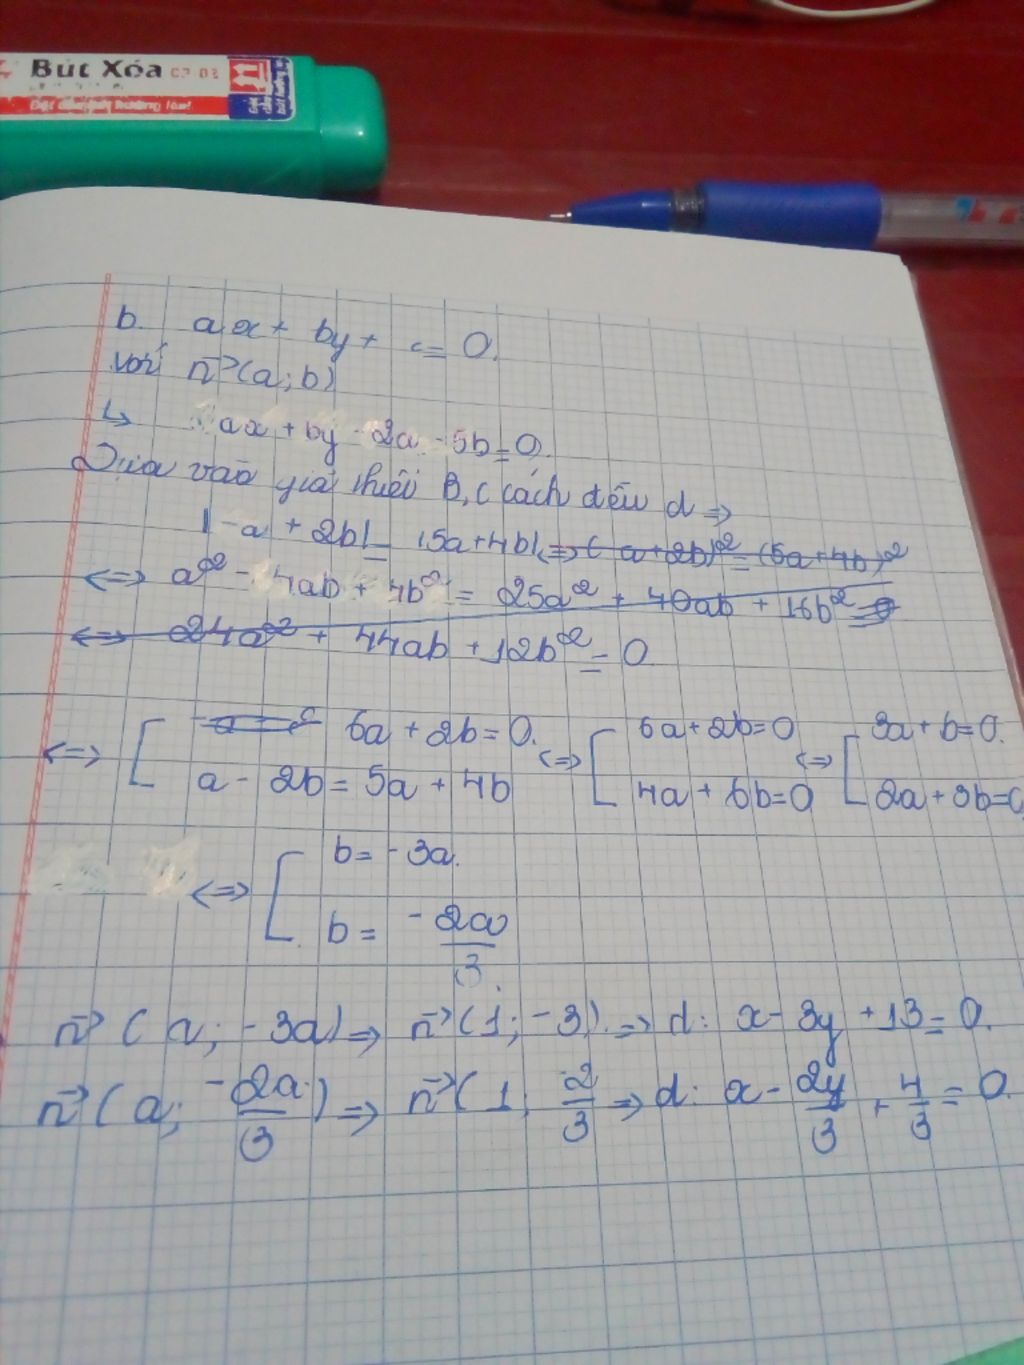 Bút Xóa CP 02
b. ax + by + c = 0.
với n→(a; b)
↳ ax + by - 2a - 5b = 0.
Dựa vào giả thiết B, C cách đều d ⇒
|-a + 2b| = |5a + 4b| ⇔ (a + 2b)² = (5a + 4b)²
⇔ a² - 4ab + 4b² = 25a² + 40ab + 16b² = 0
⇔ 24a² + 44ab + 12b² = 0
⇔ [ 6a + 2b = 0. ⇔ [ 6a + 2b = 0 ⇔ [ 3a + b = 0.
a - 2b = 5a + 4b 4a + 6b = 0 2a + 3b = 0
⇔ [ b = -3a.
b = -2a/3.
n→(a; -3a) ⇒ n→(1; -3). ⇒ d: x - 3y + 13 = 0.
n→(a; -2a/3) ⇒ n→(1; 2/3 ⇒ d: x - 2y/3 + 4/3 = 0.